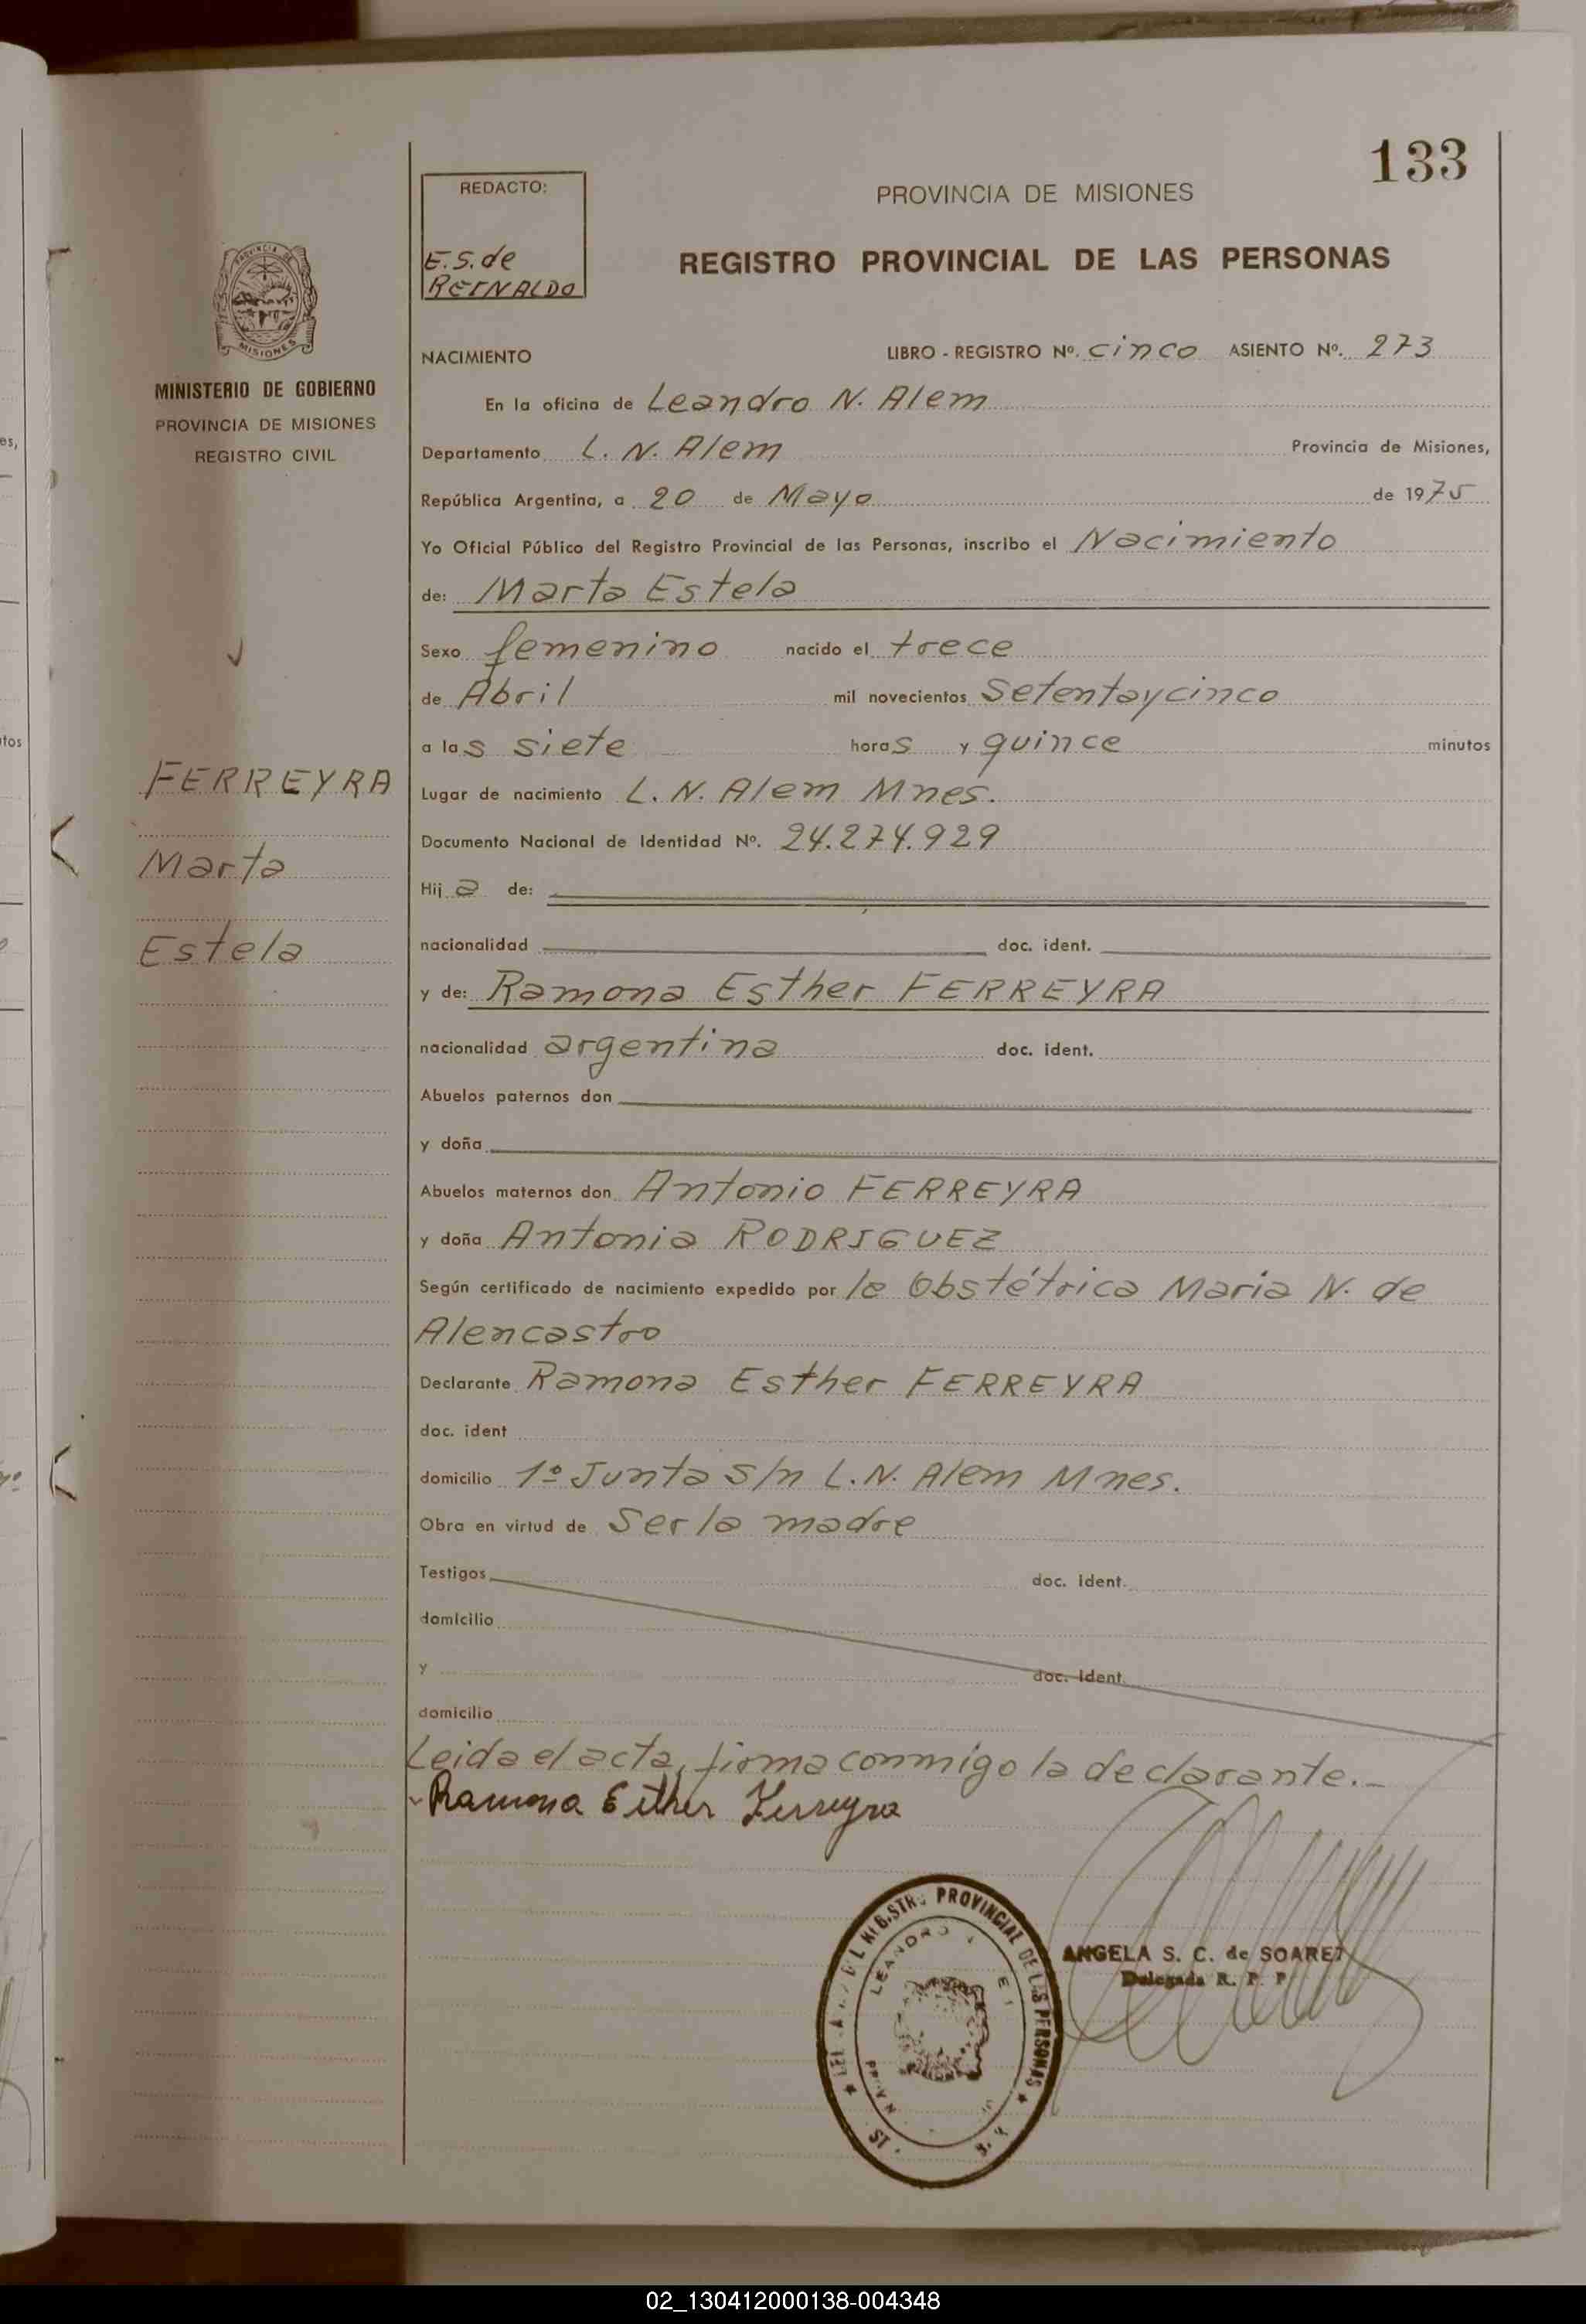 133
REDACTO:
E.S.de
REINALDO
PROVINCIA DE MISIONES
REGISTRO PROVINCIAL DE LAS PERSONAS
PROVINCIA DE
MISIONES
MINISTERIO DE GOBIERNO
PROVINCIA DE MISIONES
REGISTRO CIVIL
NACIMIENTO LIBRO - REGISTRO Nº. cinco ASIENTO Nº. 273
En la oficina de Leandro N. Alem
Departamento L. N. Alem Provincia de Misiones,
República Argentina, a 20 de Mayo de 1975
Yo Oficial Público del Registro Provincial de las Personas, inscribo el Nacimiento
de: Marta Estela
Sexo femenino nacido el trece
de Abril mil novecientos Setentaycinco
a las siete horas y quince minutos
FERREYRA
Marta
Estela
Lugar de nacimiento L. N. Alem Mnes.
Documento Nacional de Identidad Nº. 24.274.929
Hija de:
nacionalidad doc. ident.
y de: Ramona Esther FERREYRA
nacionalidad argentina doc. ident.
Abuelos paternos don
y doña
Abuelos maternos don Antonio FERREYRA
y doña Antonia RODRIGUEZ
Según certificado de nacimiento expedido por la Obstétrica Maria N. de
Alencastro
Declarante Ramona Esther FERREYRA
doc. ident
domicilio 1º Junta s/n L.N. Alem Mnes.
Obra en virtud de Ser la madre
Testigos doc. ident.
domicilio
y doc. ident.
domicilio
Leida el acta, firma conmigo la declarante.-
Ramona Esther Ferreyra
PROVINCIAL DE LAS PERSONAS
LEANDRO
ANGELA S. C. de SOAREZ
Delegada R. P. P.
02_130412000138-004348